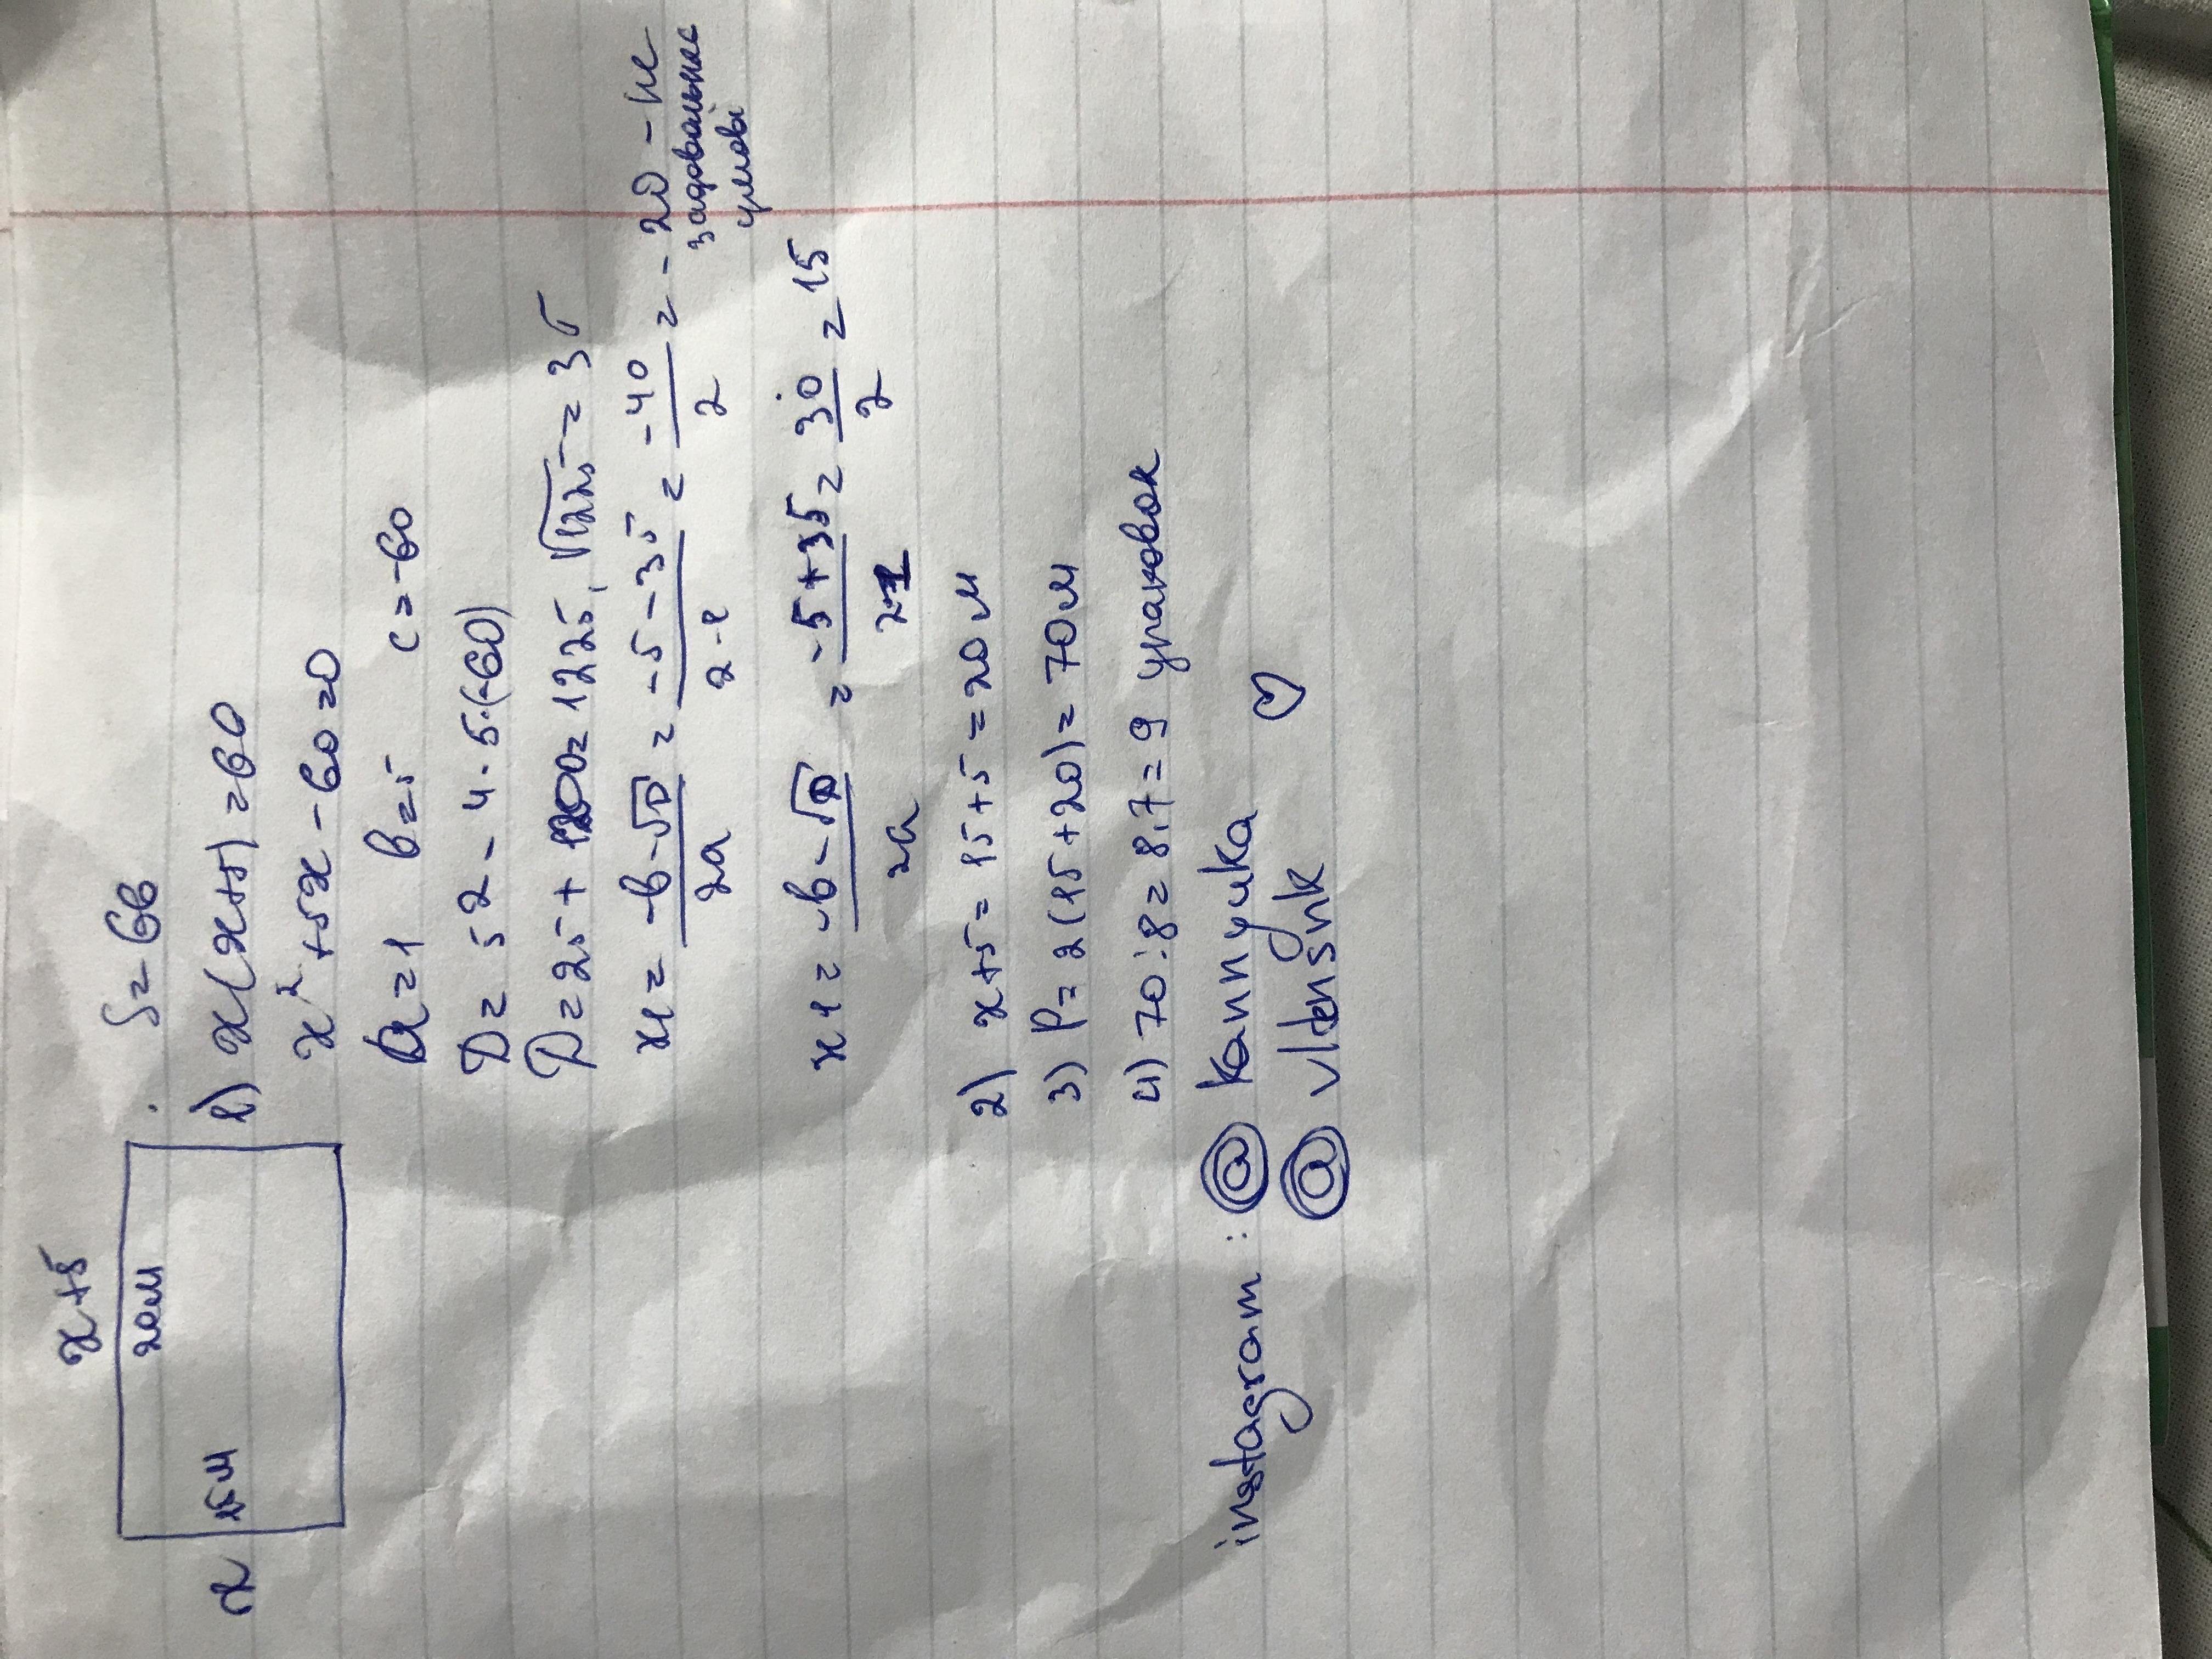 x+5
20м
x 15м
S=66
1) x(x+5)=60
x²+5x-60=0
a=1 b=5 c=-60
D=52-4·5·(-60)
D=25+1200=1225, √1225=35
x1= -b-√D/2a = -5-35/2·1 = -40/2 = -20 - не задовольняє умові
x1= -b-√D/2a = -5+35/2·1 = 30/2 = 15
2) x+5=15+5=20м
3) P=2(15+20)=70м
4) 70:8=8,7=9 упаковок
instagram: @ kannyuka ♡
@ vldensnk